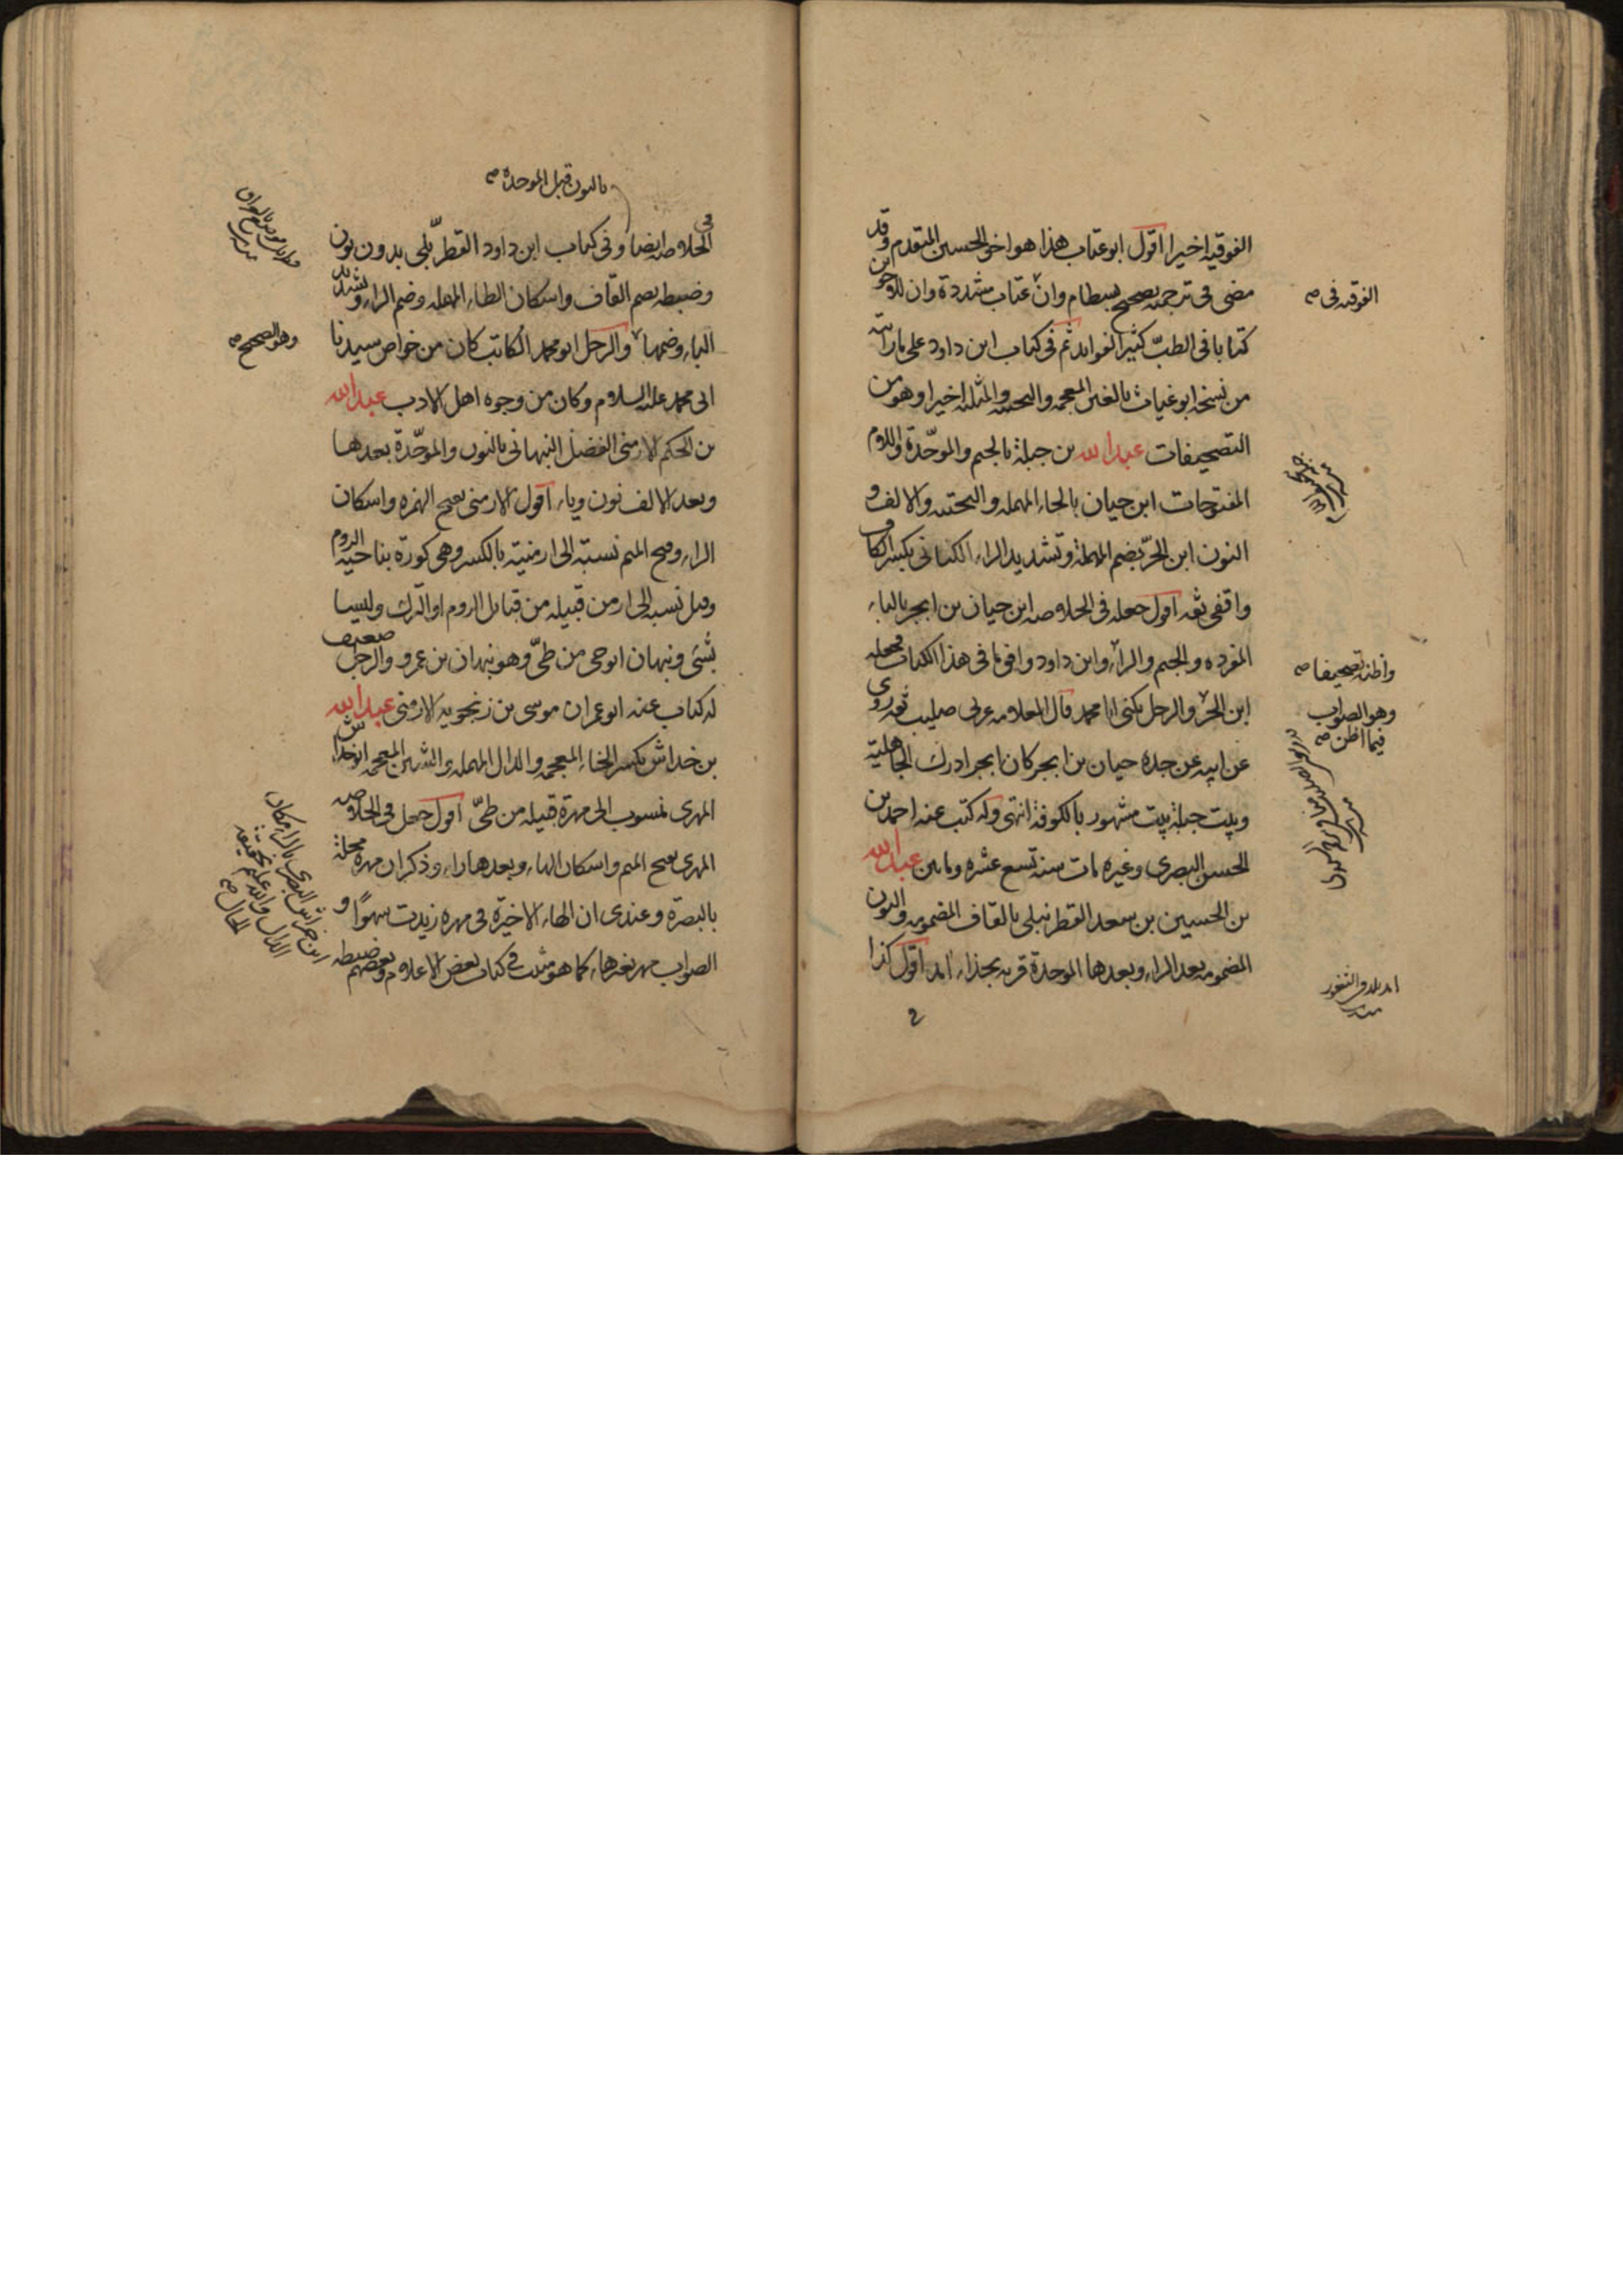 الفوقيه اخيرا اقول ابو عتاب هذا هو اخو الحسين المتقدم وقد
مضى فى ترجمته تصحيح بسطام وان عتاب مشددة وان للاخوين
كتابا فى الطب كثير الفوايد ثم فى كتاب ابن داود على ما رايته
من نسخه ابو غياث بالغين المعجمه والتحتيه والمثلثه اخيرا وهو من
التصحيفات عبد الله بن جبلة بالجيم والموحّدة واللام
المفتوحات ابن حيان بالحاء المهمله والتحتيه والالف و
النون ابن الحرّ بضم المهملة وتشديد الراء الكنانى بكسر الكاف
واقفى ثقه اقول جعله فى الخلاصه ابن حيان بن ابجر بالباء
المفرده والجيم والراء وابن داود وافق ما فى هذا الكتاب فجعله
ابن الحرّ والرجل يكنى ابا محمد قال العلامه عربى صليب ثقه روى
عن ابيه عن جده حيان بن ابجر كان ابجر ادرك الجاهلية
وبيت جبلة بيت مشهور بالكوفة انتهى وله كتب عنه احمد بن
الحسن البصرى وغيره مات سنة تسع عشره وماتين عبد الله
بن الحسين بن سعد القطرنبلى بالقاف المضمومه والنون
المضمومه بعد الراء وبعدها الموحدة قريه بحذاء امد اقول كذا
الفوقيه فى صح
واظنه تصحيفا صح
وهو الصواب
فيما اظن صح
امد بلد فى الثغور
بالنون قبل الموحدة صح
فى
الخلاصه ايضا وفى كتاب ابن داود القطربّلى بدون نون
وضبطه بضم القاف واسكان الطاء المهمله وضم الراء وتشديد
الباء وضمها والرجل ابو محمد الكاتب كان من خواص سيدنا
ابى محمد عليه السلام وكان من وجوه اهل الادب عبد الله
بن الحكم الارمنى الفضل النبهانى بالنون والموحّدة بعدها
وبعد الالف نون وياء اقول الارمنى بفتح الهمزه واسكان
الراء وفتح الميم نسبة الى ارمنية بالكسر وهى كورة بناحية الروم
وقيل نسبه الى ارمن قبيله من قبائل الروم او الترك وليسا
بشئ ونبهان ابو حى من طىّ وهو نبهان بن عمرو والرجل ضعيف
له كتاب عنه ابو عمران موسى بن زنجويه الارمنى عبد الله
بن خداش بكسر الخاء المعجمه والدال المهمله والشين المعجمه ابو خداش
المهرى منسوب الى مهرة قبيله من طىّ اقول جعل فى الخلاصه
المهرى بفتح الميم واسكان الهاء وبعدها راء وذكر ان مهره محلة
بالبصرة وعندى ان الهاء الاخيرة فى مهره زيدت سهوًا و
الصواب مهر بغيرها كما هو مثبت فى كتاب بعض الاعلام وبعضهم ضبطه
وهو الصحيح صح
ابن خراش البصرى بالراء مكان
الدال والله علم بحقيقة
الحال صح